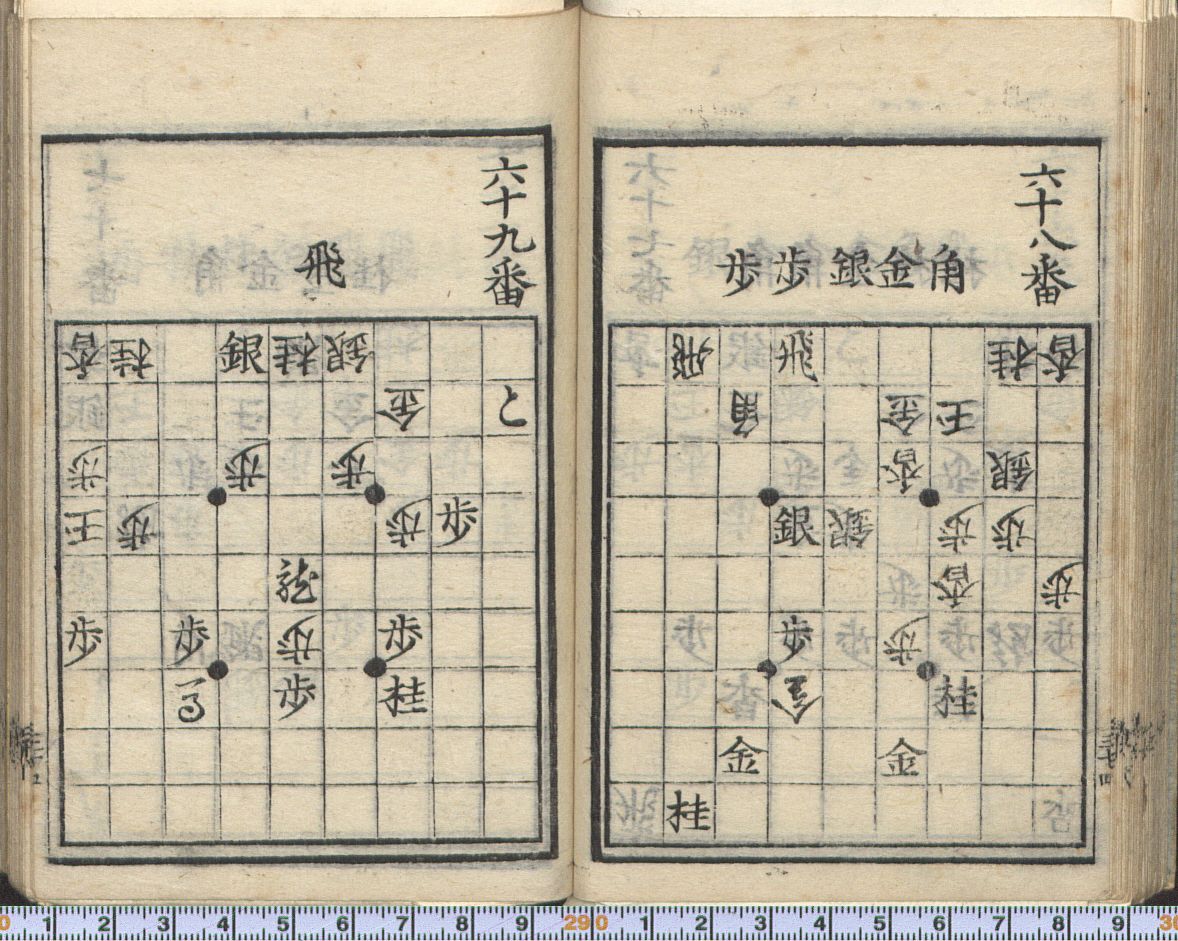 六十八番
角金銀歩歩
香桂飛飛
王金角
銀香
歩歩銀銀
歩香
歩歩
桂金
金金
桂
六十九番
飛
銀桂銀桂香
と金
歩歩歩
歩歩歩王
龍
歩歩歩歩
桂歩馬
0 1 2 3 4 5 6 7 8 290 1 2 3 4 5 6 7 8 9 30